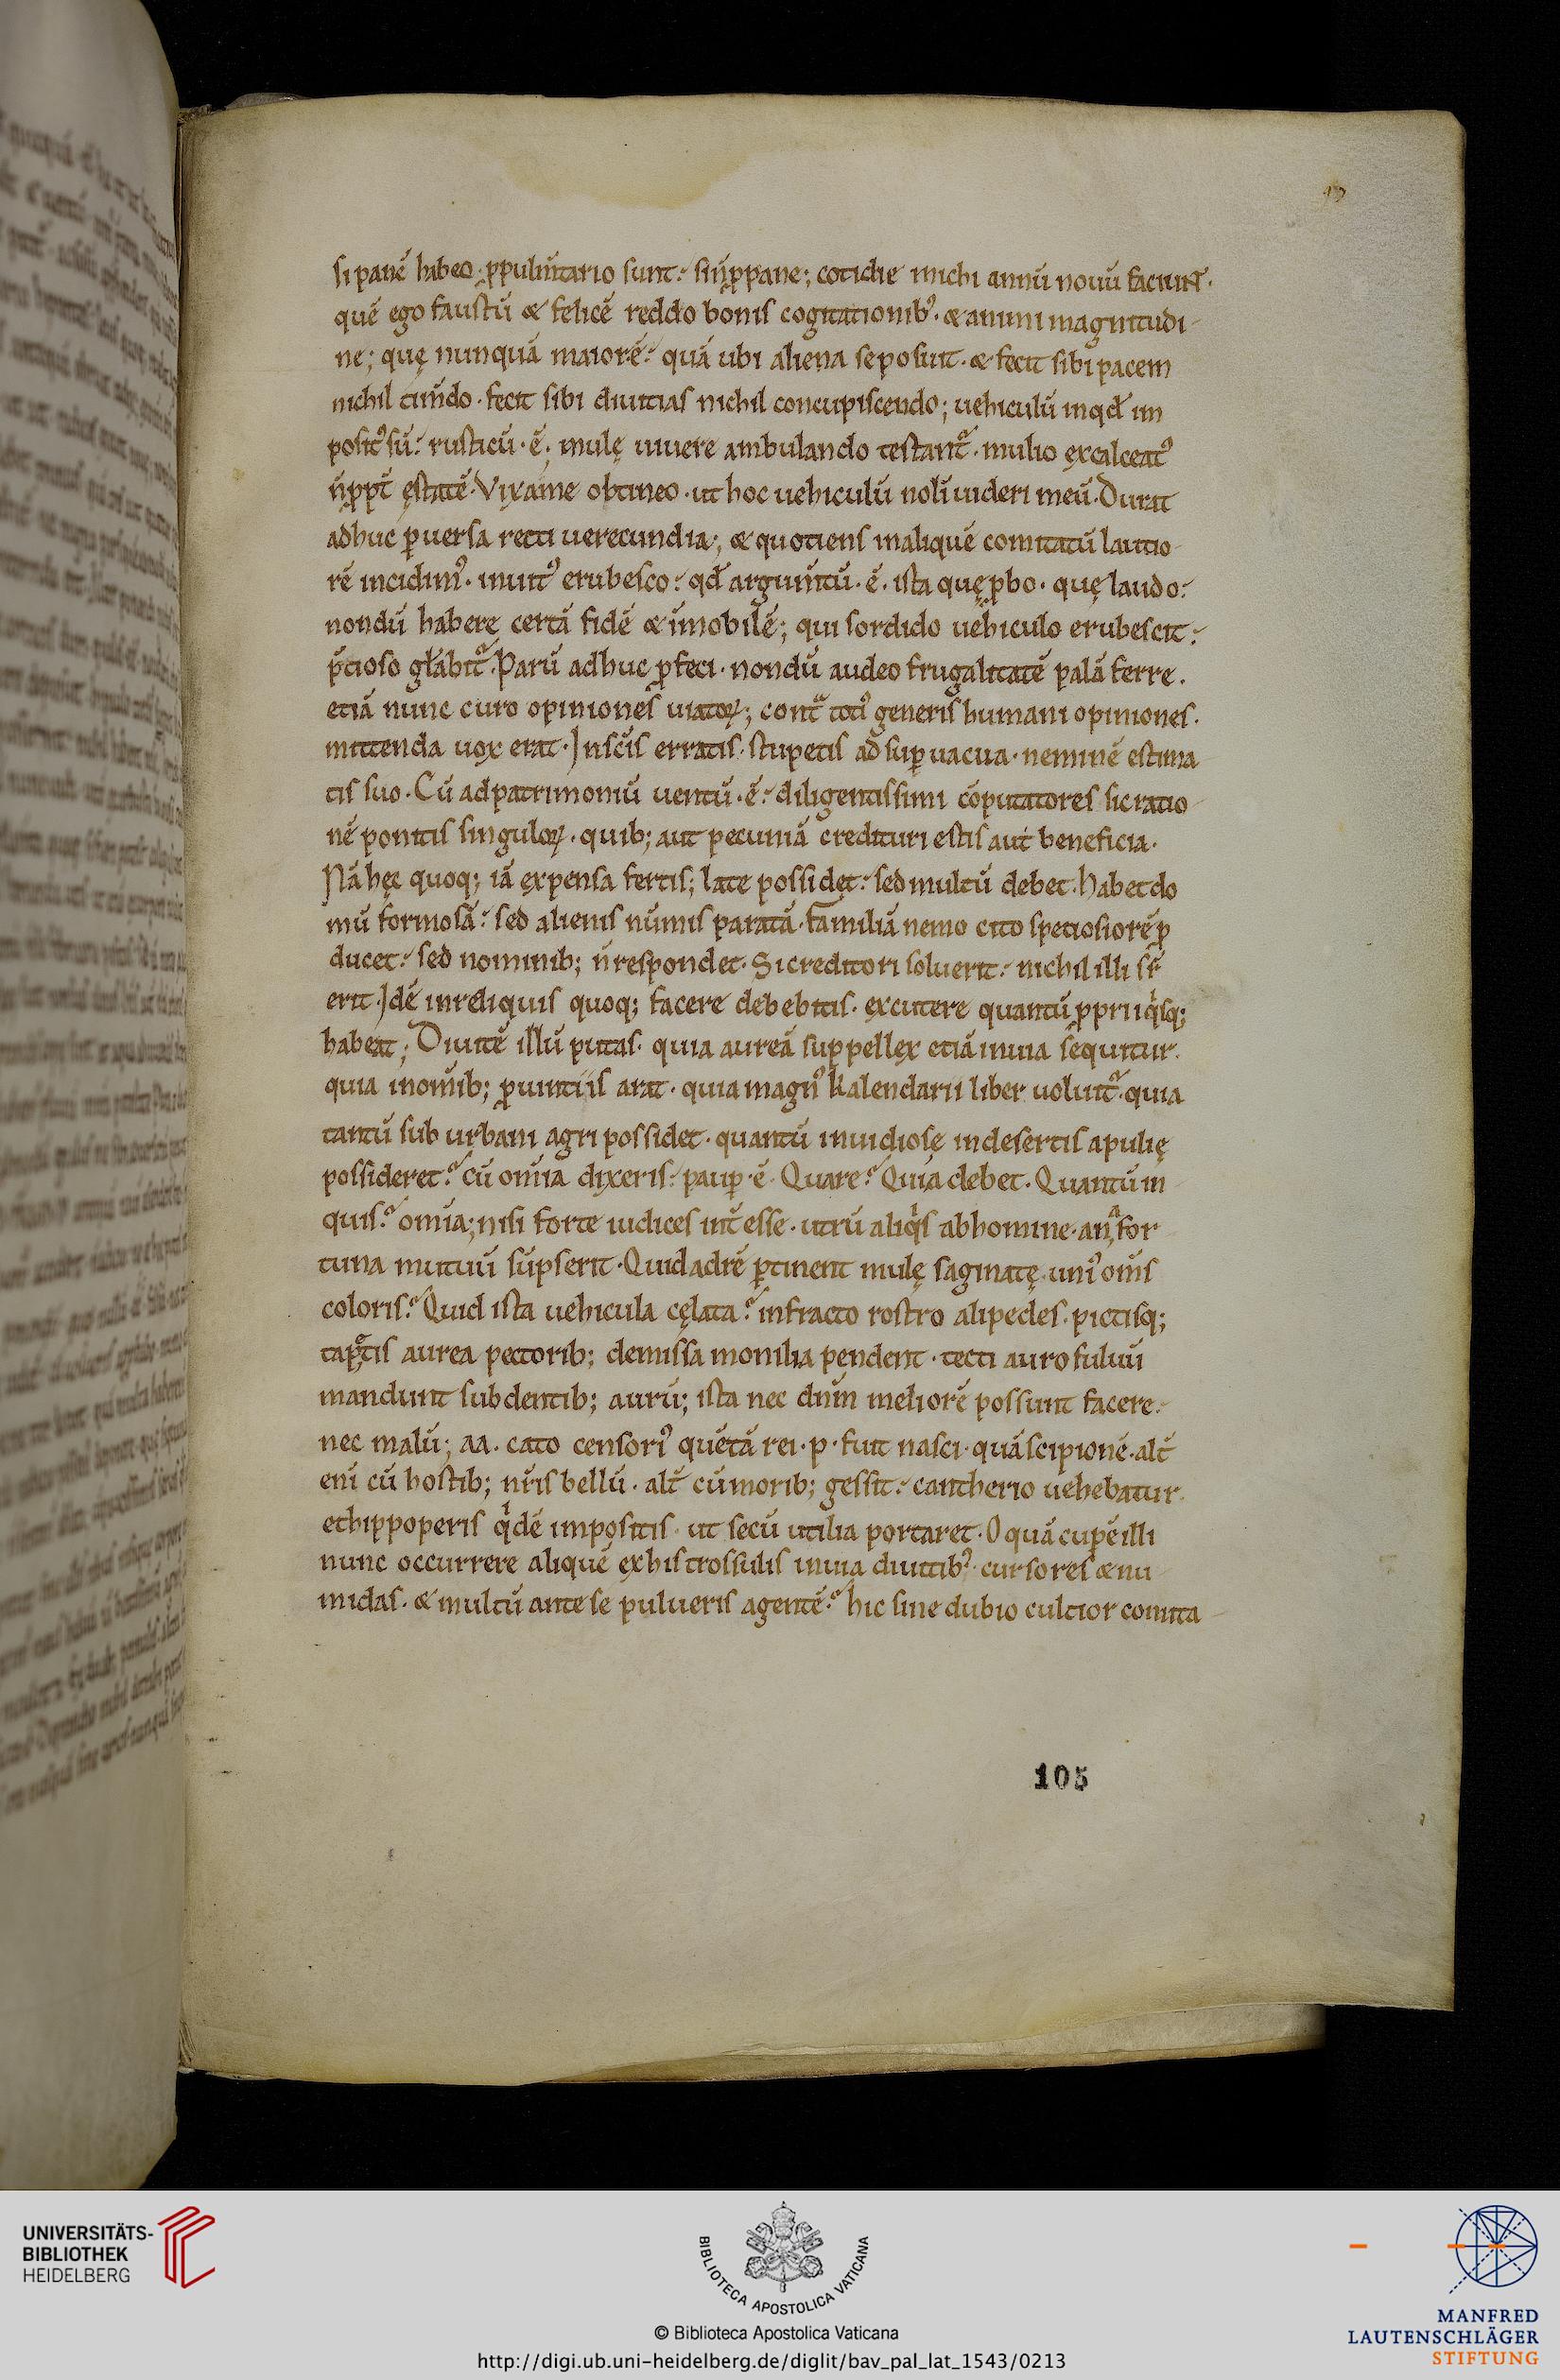 si panē habeo ꝓ pulmtario sunt. siñ ꝓ pane; cotidie michi annū nouū faciunt.
quē ego faustū & felicē reddo bonis cogitationibꝰ. & animi magnitudi-
ne; quę nunquā maiorē. quā ubi aliena seposuit. & fecit sibi pacem
nichil tim̄do. fecit sibi diuitias nichil concupiscendo; uehiculū inqđ im
positꝰ sū. rusticū. ē. mulę uiuere ambulando testant᷑. mulio excalceatꝰ
n̄ ꝓpt̄ ęstatē. Vix a me obtineo. ut hoc uehiculū nolī uideri meū. Durat
adhuc ꝑuersa recti uerecundia; & quotiens in aliquē comitatū lautio-
rē incidimꝰ. inuitꝰ erubesco. qđ argum̄tū. ē. ista quę ꝓbo. quę laudo.
nondū habere certā fidē & īmobilē; qui sordido uehiculo erubescit.
p̄cioso gl̄abit᷑. Parū adhuc ꝓfeci. nondū audeo frugalitatē palā ferre.
etiā nunc curo opiniones uiatoꝝ; contᷓ totiꝰ generis humani opiniones.
mittenda uox erat. Insc̄is erratis. stupetis ad suꝑuacua. neminē estima
tis suo. Cū ad patrimoniū uentū. ē. diligentissimi cōputatores sic ratio-
nē ponitis singuloꝝ. quib; aut pecuniā credituri estis aut beneficia.
Nā hęc quoq; iā expensa fertis; late possidet. sed multū debet. habet do
mū formosā. sed alienis nūmis paratā. familiā nemo cito speciosiorē ꝓ
ducet. sed nominib; n̄ respondet. Si creditori soluerit. nichil illi suꝑ
erit. Idē in reliquis quoq; facere debebitis. excutere quantū ꝓprii qͥsq;
habeat; Diuitē illū putas. quia aureā suppellex etiā in uia sequitur.
quia in om̄ib; ꝓuintiis arat. quia magnꝰ kalendarii liber uoluit᷑. quia
tantū suburbani agri possidet. quantū inuidiose in desertis apulię
possideret. cū om̄ia dixeris. pauꝑ. ē. Quare. Quia debet. Quantū in
quis. om̄ia; nisi forte iudices int̄esse. utrū aliqͥs ab homine. an a for
tuna mutuū sūpserit. Quid ad rē ꝑtinent mulę saginatę. uniꝰ om̄s
coloris. Quid ista uehicula cęlata. infracto rostro alipedes. pictisq;
tapetis aurea pectorib; demissa monilia pendent. tecti auro fuluū
mandunt sub dentib; aurū; ista nec dn̄m meliorē possunt facere.
nec malū; aa. cato censoriꝰ quē tā rei. p. fuit nasci. quā scipionē. alt̄
enī cū hostib; nr̄is bellū. alt̄ cū morib; gessit. cantherio uehebatur.
et hippoperis qͥdē impositis. ut secū utilia portaret. O quā cuperē illi
nunc occurrere aliquē ex his trossulis in uia diuitibꝰ. cursores & nu
midas. & multū ante se pulueris agentē. hic sine dubio cultior comita-
105
UNIVERSITÄTS-
BIBLIOTHEK
HEIDELBERG
BIBLIOTECA APOSTOLICA VATICANA
© Biblioteca Apostolica Vaticana
http://digi.ub.uni-heidelberg.de/diglit/bav_pal_lat_1543/0213
MANFRED
LAUTENSCHLÄGER
STIFTUNG